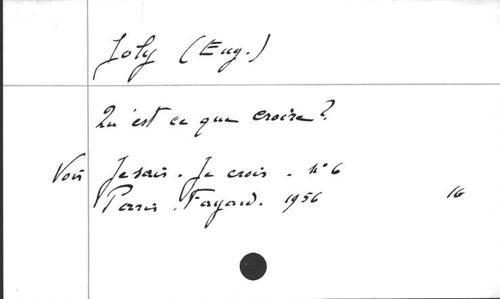 Joly (Eug.)
Qu'est ce que croire?
Voir Je sais. Je crois. n° 6
Paris. Fayard. 1956 16